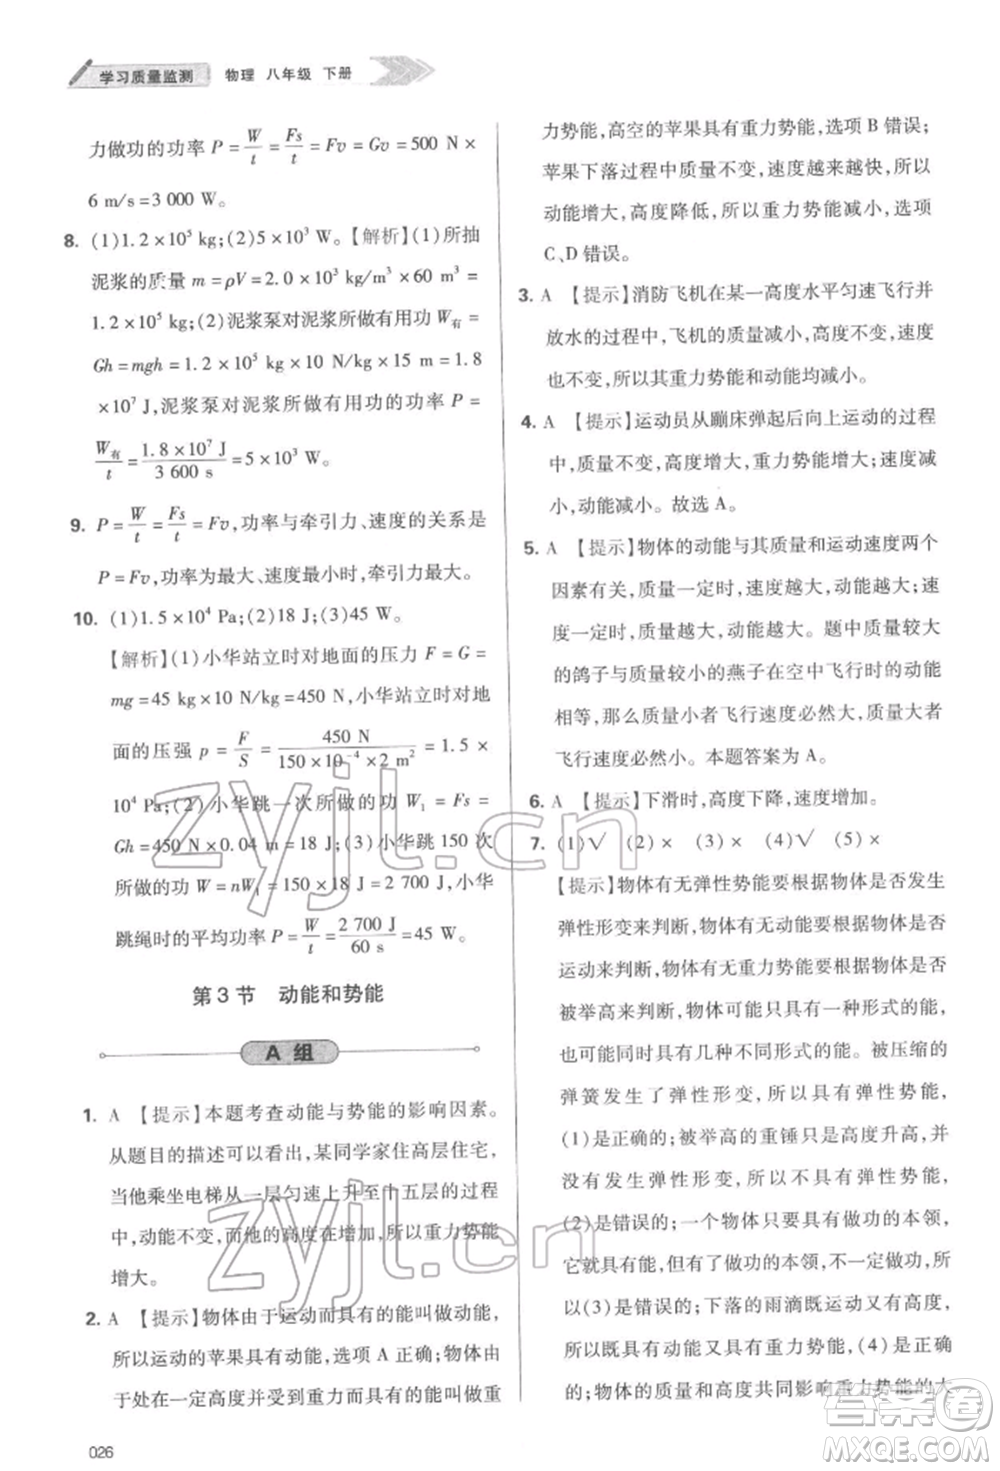 学习质量监测 物理 八年级 下册
力做功的功率 P = W/t = Fs/t = Fv = Gv = 500 N ×
6 m/s = 3 000 W。
8. (1)1.2 × 10⁵ kg;(2)5 × 10³ W。【解析】(1)所抽
泥浆的质量 m = ρV = 2.0 × 10³ kg/m³ × 60 m³ =
1.2 × 10⁵ kg;(2)泥浆泵对泥浆所做有用功 W有 =
Gh = mgh = 1.2 × 10⁵ kg × 10 N/kg × 15 m = 1.8
× 10⁷ J,泥浆泵对泥浆所做有用功的功率 P =
W有/t = 1.8 × 10⁷ J/3 600 s = 5 × 10³ W。
9. P = W/t = Fs/t = Fv,功率与牵引力、速度的关系是
P = Fv,功率为最大、速度最小时,牵引力最大。
10. (1)1.5 × 10⁴ Pa;(2)18 J;(3)45 W。
【解析】(1)小华站立时对地面的压力 F = G =
mg = 45 kg × 10 N/kg = 450 N,小华站立时对地
面的压强 p = F/S = 450 N/150 × 10⁻⁴ × 2 m² = 1.5 ×
10⁴ Pa;(2)小华跳一次所做的功 W₁ = Fs =
Gh = 450 N × 0.04 m = 18 J;(3)小华跳 150 次
所做的功 W = nW₁ = 150 × 18 J = 2 700 J,小华
跳绳时的平均功率 P = W/t = 2 700 J/60 s = 45 W。
第 3 节 动能和势能
A 组
1. A 【提示】本题考查动能与势能的影响因素。
从题目的描述可以看出,某同学家住高层住宅,
当他乘坐电梯从一层匀速上升至十五层的过程
中,动能不变,而他的高度在增加,所以重力势能
增大。
2. A 【提示】物体由于运动而具有的能叫做动能,
所以运动的苹果具有动能,选项 A 正确;物体由
于处在一定高度并受到重力而具有的能叫做重
026
力势能,高空的苹果具有重力势能,选项 B 错误;
苹果下落过程中质量不变,速度越来越快,所以
动能增大,高度降低,所以重力势能减小,选项
C、D 错误。
3. A 【提示】消防飞机在某一高度水平匀速飞行并
放水的过程中,飞机的质量减小,高度不变,速度
也不变,所以其重力势能和动能均减小。
4. A 【提示】运动员从蹦床弹起后向上运动的过程
中,质量不变,高度增大,重力势能增大;速度减
小,动能减小。故选 A。
5. A 【提示】物体的动能与其质量和运动速度两个
因素有关,质量一定时,速度越大,动能越大;速
度一定时,质量越大,动能越大。题中质量较大
的鸽子与质量较小的燕子在空中飞行时的动能
相等,那么质量小者飞行速度必然大,质量大者
飞行速度必然小。本题答案为 A。
6. A 【提示】下滑时,高度下降,速度增加。
7. (1)√ (2)× (3)× (4)√ (5)×
【提示】物体有无弹性势能要根据物体是否发生
弹性形变来判断,物体有无动能要根据物体是否
运动来判断,物体有无重力势能要根据物体是否
被举高来判断,物体可能只具有一种形式的能,
也可能同时具有几种不同形式的能。被压缩的
弹簧发生了弹性形变,所以具有弹性势能,
(1)是正确的;被举高的重锤高度升高,并
没有发生弹性形变,所以不具有弹性势能,
(2)是错误的;一个物体只要具有做功的本领,
它就具有能,但具有做功的本领,不一定做功,所
以(3)是错误的;下落的雨滴既运动又有高度,
所以既具有动能又具有重力势能,(4)是正确
的;物体的质量和高度共同影响重力势能的大
zyjl.cn
zyjl.cn
答案圈
MXQE.COM